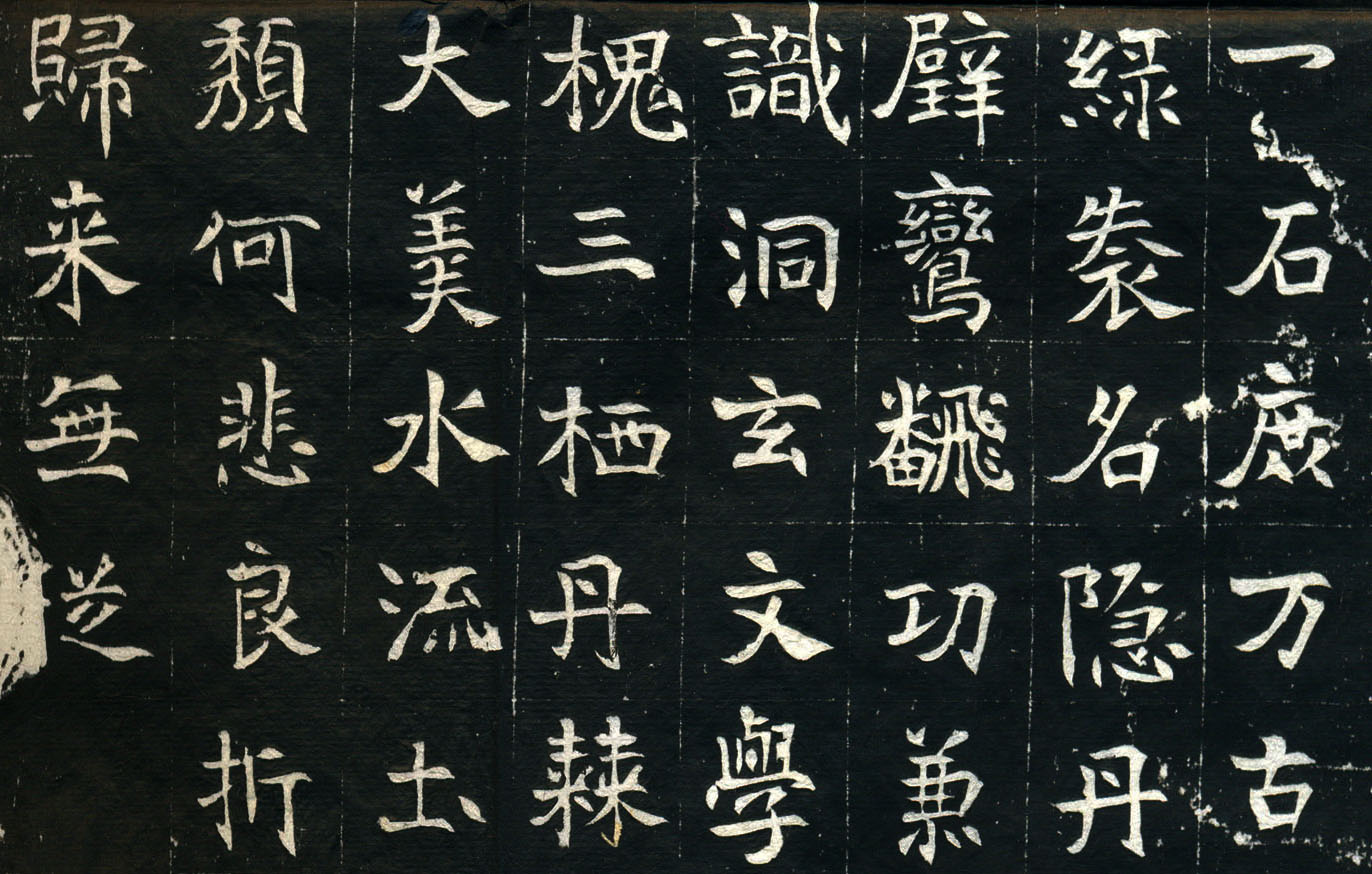 一石庶万古
綠袠名隐丹
壁鸞飜功兼
識洞玄文學
槐三栖丹棘
大美水流土
頹何悲良折
歸来無